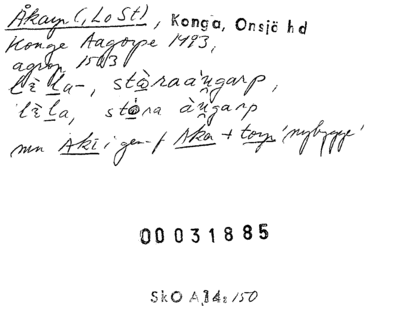 Åkarp (, Lo St), Konga, Onsjö hd
Konge Aagorpe 1493,
agrop 1583
lɛ̀la-, stɔ̀raàŋgarp,
lɛ̀la, stòra àŋgarp
mn Aki i gen-f Aka + torp 'nybygge'
00031885
SkO A14: 150